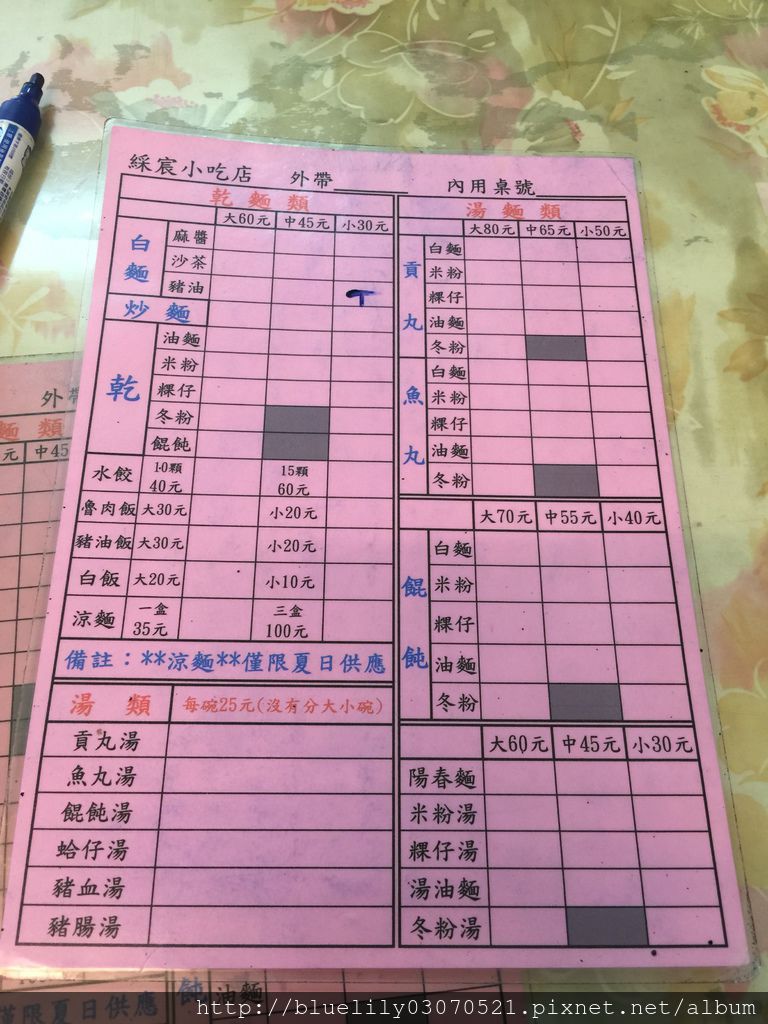 綵宸小吃店 外帶 內用桌號
乾麵類
大60元 中45元 小30元
白麵
麻醬
沙茶
豬油
炒麵
乾
油麵
米粉
粿仔
冬粉
餛飩
水餃 10顆 40元 15顆 60元
魯肉飯 大30元 小20元
豬油飯 大30元 小20元
白飯 大20元 小10元
涼麵 一盒 35元 三盒 100元
備註：**涼麵**僅限夏日供應
湯類 每碗25元(沒有分大小碗)
貢丸湯
魚丸湯
餛飩湯
蛤仔湯
豬血湯
豬腸湯
湯麵類
大80元 中65元 小50元
貢丸
白麵
米粉
粿仔
油麵
冬粉
魚丸
白麵
米粉
粿仔
油麵
冬粉
大70元 中55元 小40元
餛飩
白麵
米粉
粿仔
油麵
冬粉
大60元 中45元 小30元
陽春麵
米粉湯
粿仔湯
湯油麵
冬粉湯
外帶
麵類
元 中45
僅限夏日供應 飩 油麵
http://bluelily03070521.pixnet.net/album